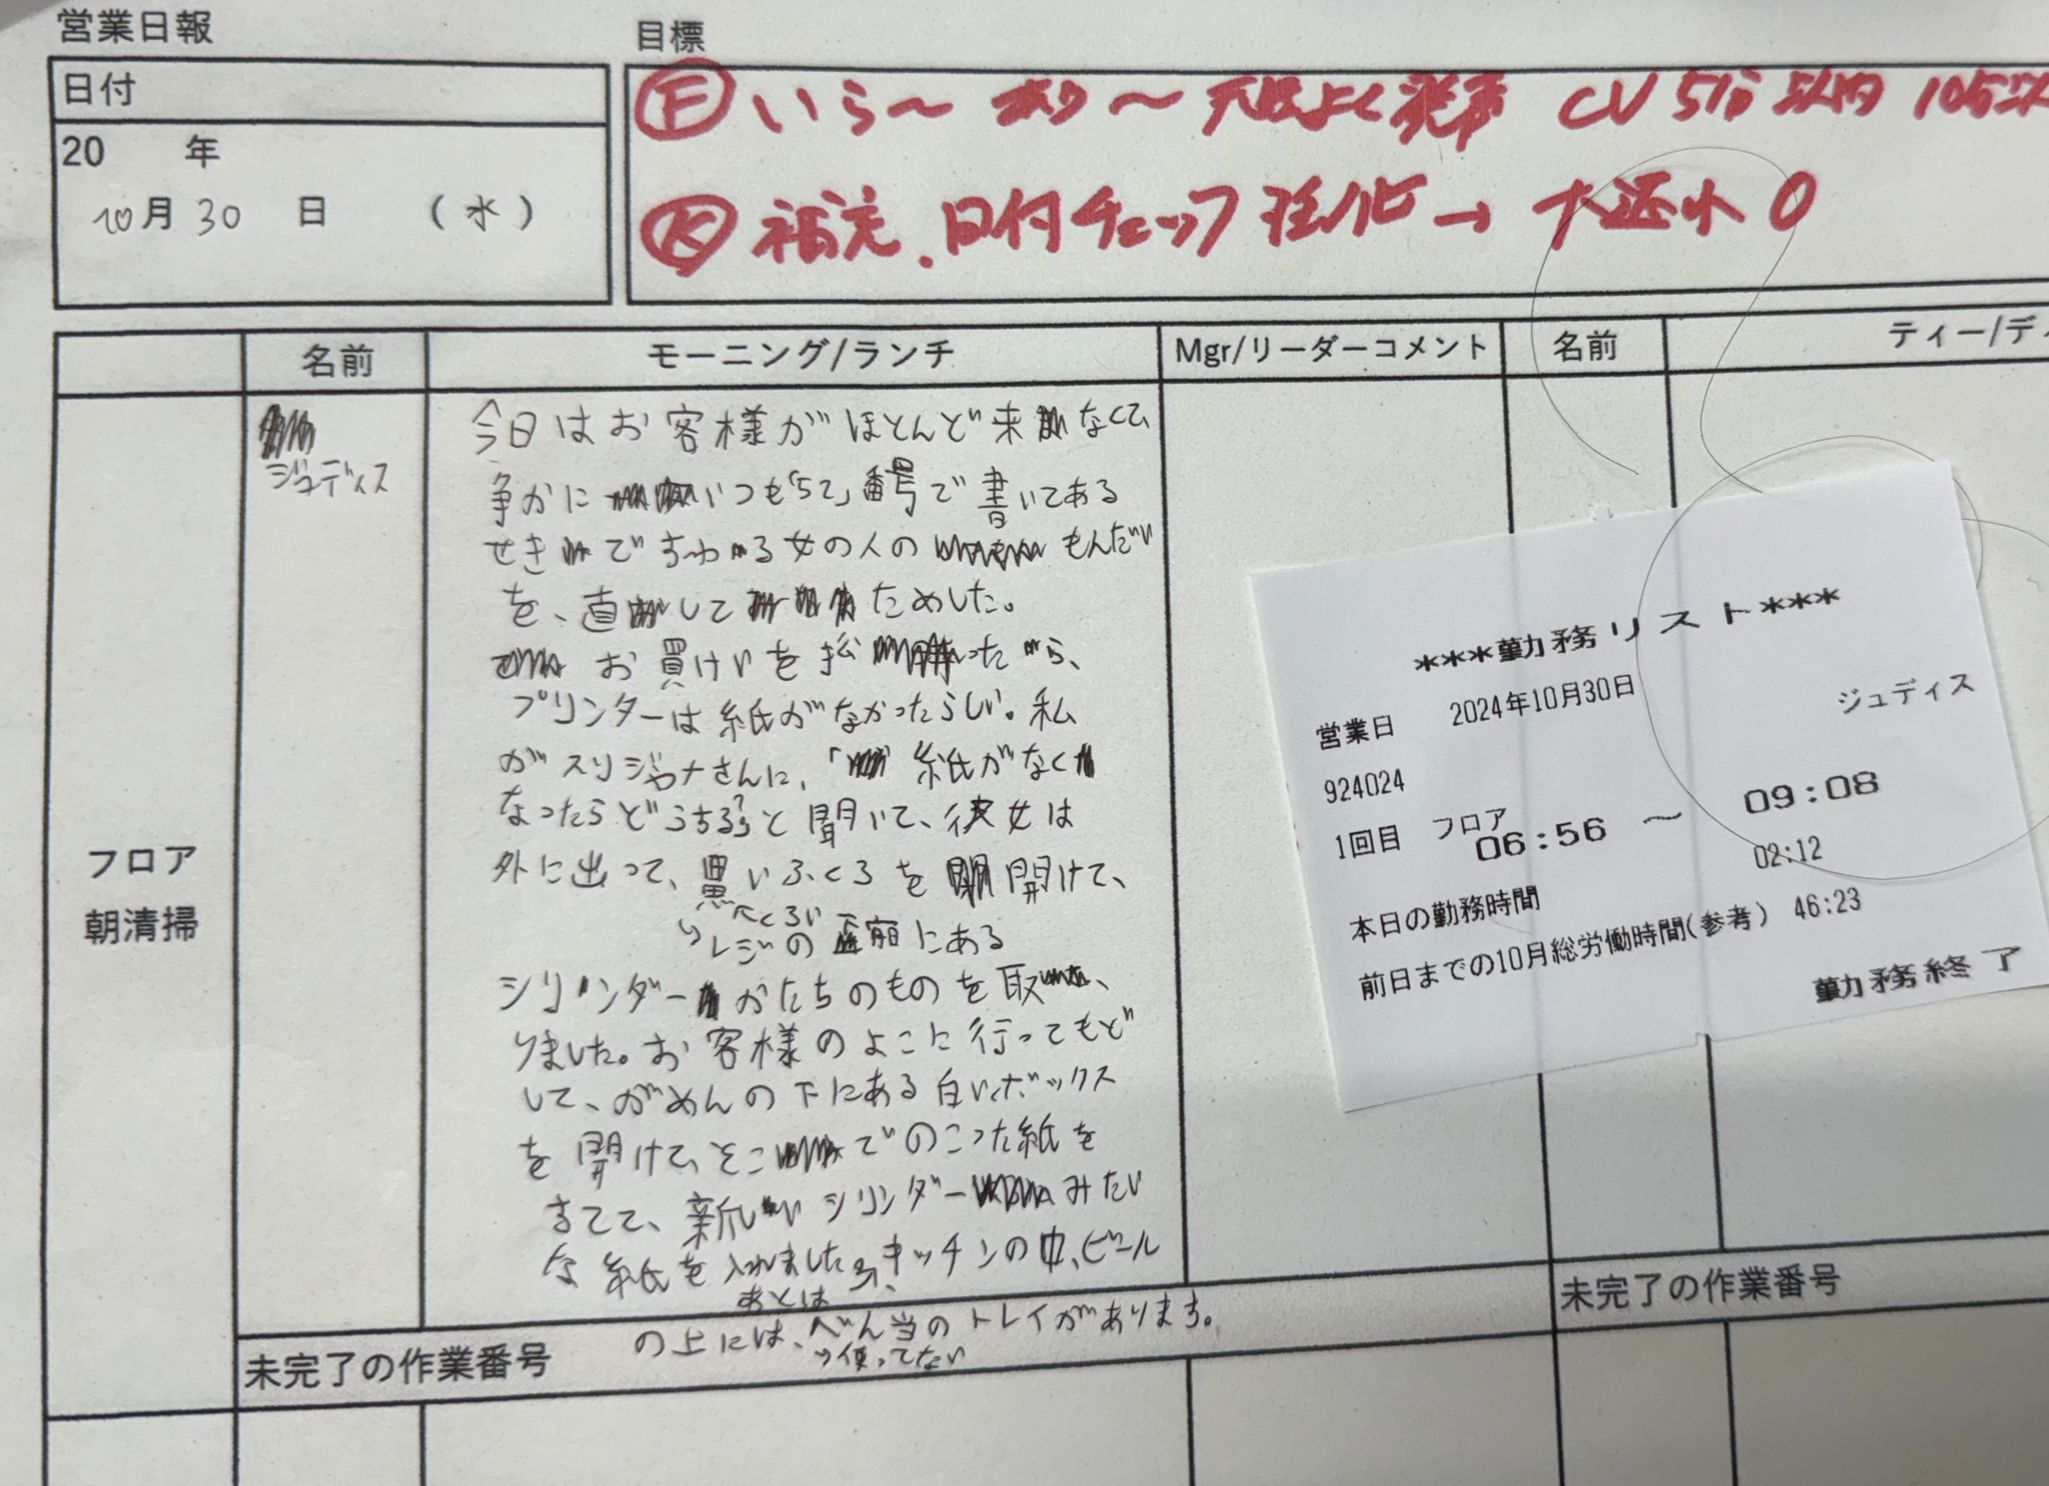 営業日報
日付
20 年
10月 30 日 (水)
目標
Ⓕ いら〜 あり〜 元気よく CV 5分以内 10分以
Ⓚ 補充、日付チェック → 0
名前
モーニング/ランチ
Mgr/リーダーコメント
名前
ティー/デ
フロア
朝清掃
ジュディス
今日はお客様がほとんど来なくて
争かに いつも「52」番号で書いてある
せきですわる女の人の もんだい
を、直して ためした。
お買けいを払ったから、
プリンターは紙がなかったらしい。私
がスリジャナさんに、「紙がなく
なったらどうする?」と聞いて、彼女は
外に出って、黒いふくろを 開けて、
↳レジの 横にある
シリンダーかたちのものを取
りました。お客様のよこに行ってもど
して、がめんの下にある白いボックス
を開けて、そこでのこった紙を
すてて、新しい シリンダーみたい
な紙を入れました。
あとは、キッチンの中、ビール
の上には、べん当のトレイがあります。
↳使ってない
未完了の作業番号
未完了の作業番号
***勤務リスト***
営業日 2024年10月30日
924024 ジュディス
1回目 フロア
06:56 〜 09:08
本日の勤務時間 02:12
前日までの10月総労働時間(参考) 46:23
勤務終了